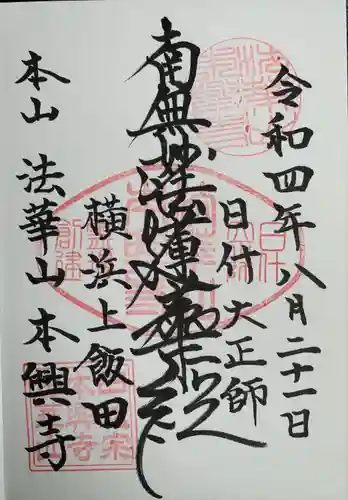 令和四年八月二十一日
日什大正師
南無妙法蓮華経
横浜上飯田
本山 法華山 本興寺
創建